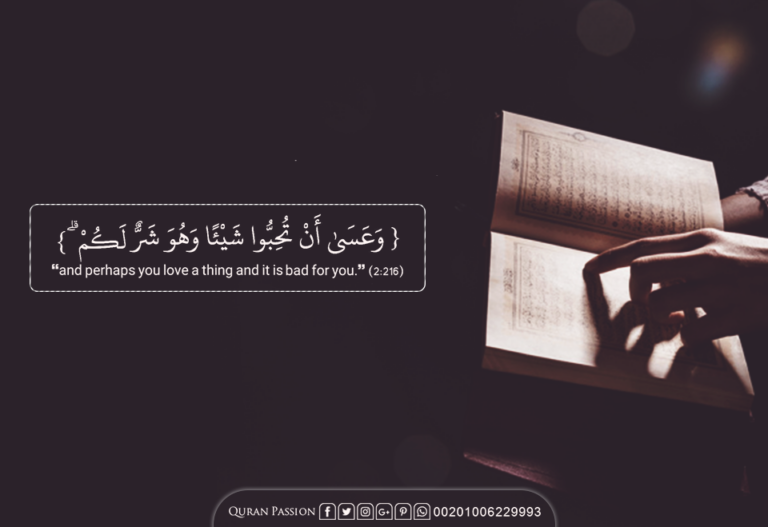 { وَعَسَىٰ أَنْ تُحِبُّوا شَيْئًا وَهُوَ شَرٌّ لَكُمْ ۗ }
“and perhaps you love a thing and it is bad for you.” (2:216)
Quran Passion 00201006229993